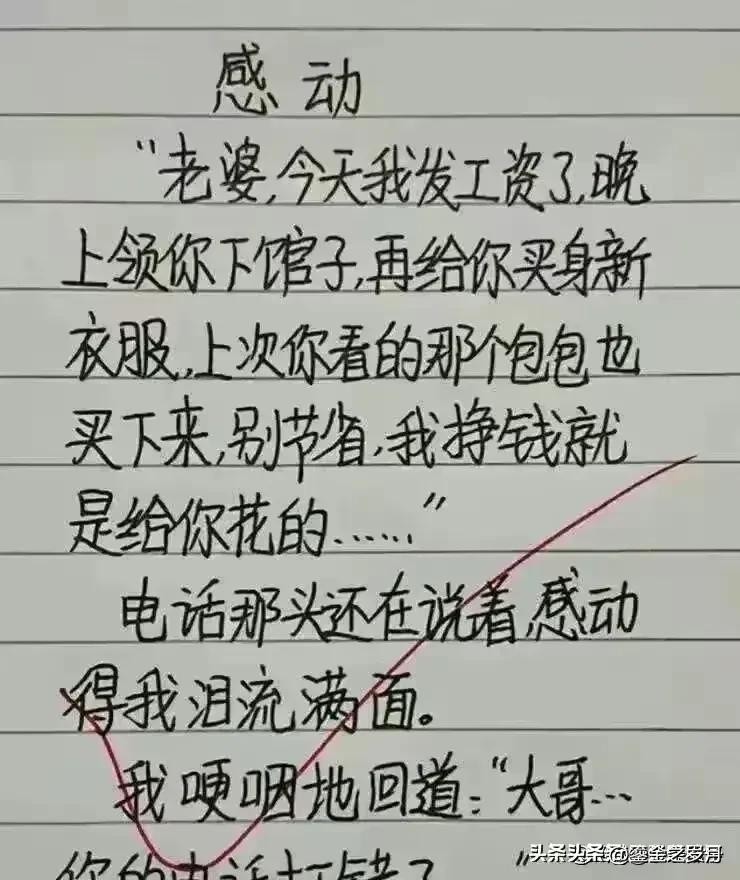 感动
“老婆,今天我发工资了,晚
上领你下馆子,再给你买身新
衣服,上次你看的那个包包也
买下来,别节省,我挣钱就
是给你花的……”
电话那头还在说着,感动
得我泪流满面。
我哽咽地回道:“大哥…
你的电话打错了…”